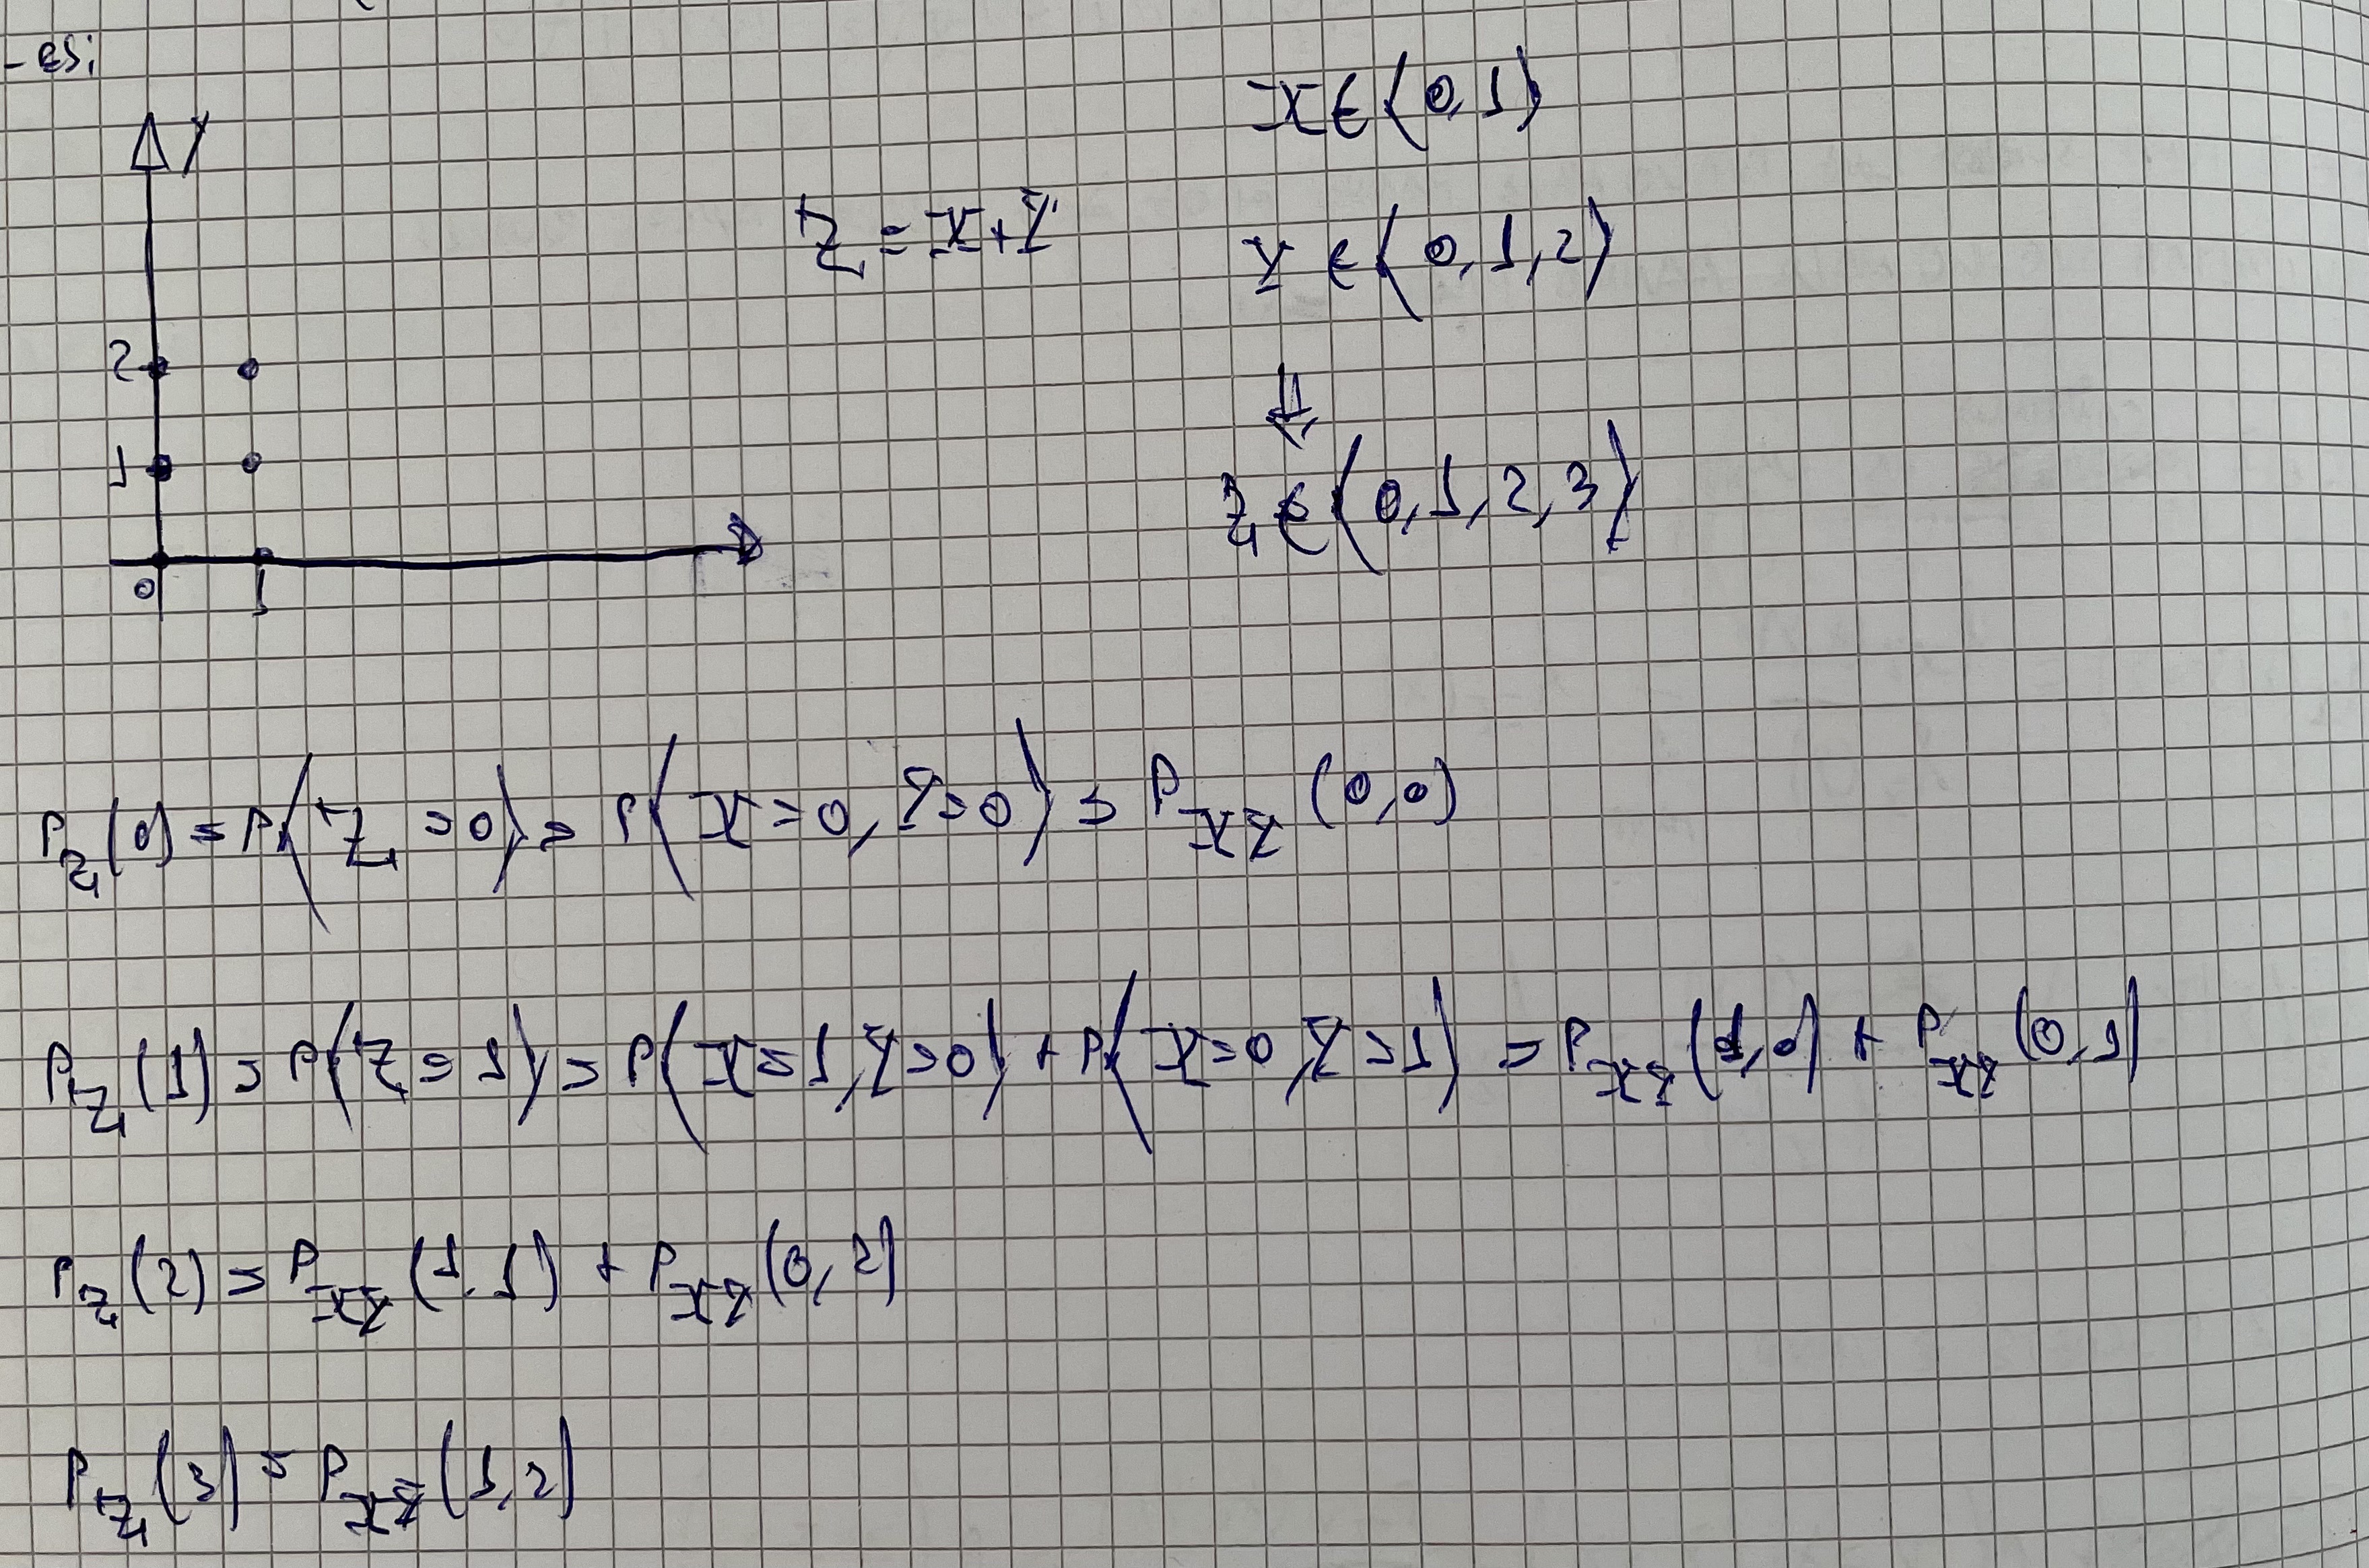 - es:
Y
X ∈ {0,1}
Z = X+Y
Y ∈ {0,1,2}
2
⇓
1
Z ∈ {0,1,2,3}
0 1
P_Z(0) = P{Z=0} = P{X=0, Y=0} = P_XY(0,0)
P_Z(1) = P{Z=1} = P{X=1, Y=0} + P{X=0, Y=1} = P_XY(1,0) + P_XY(0,1)
P_Z(2) = P_XY(1,1) + P_XY(0,2)
P_Z(3) = P_XY(1,2)